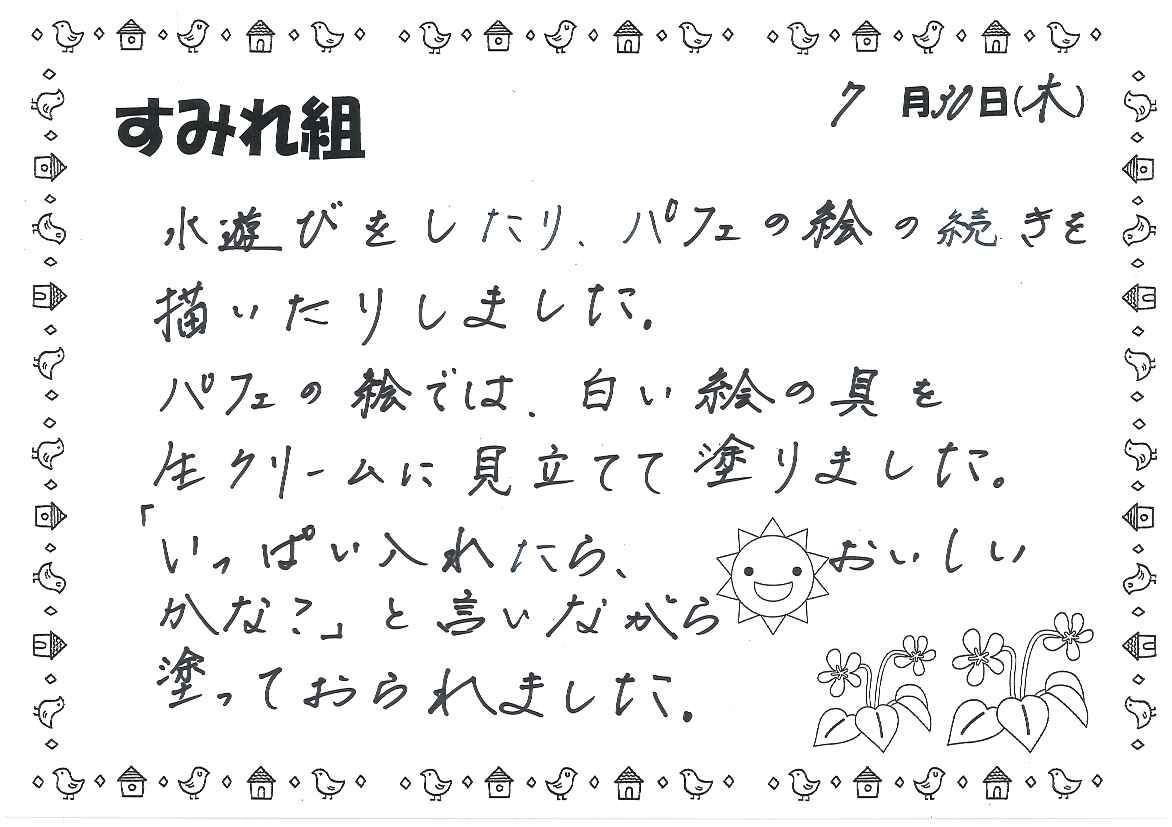 すみれ組
7月30日(木)
水遊びをしたり、パフェの絵の続きを
描いたりしました。
パフェの絵では、白い絵の具を
生クリームに見立てて塗りました。
「いっぱい入れたら、おいしい
かな?」と言いながら
塗っておられました。